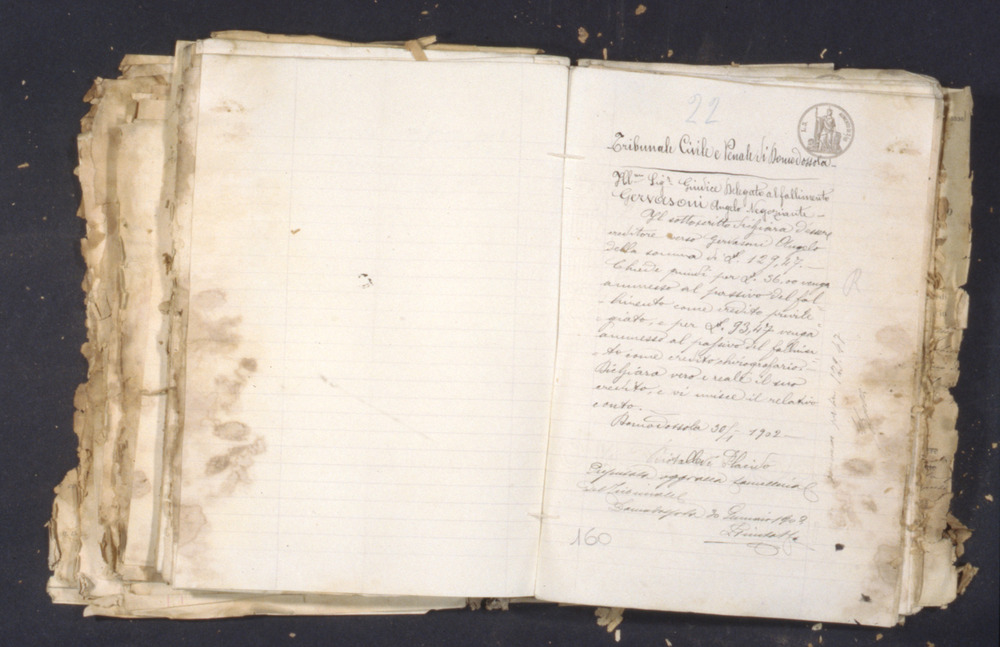 22
Tribunale Civile e Penale di Domodossola
Ill.mo Sigr Giudice Delegato al fallimento
Gervasoni Angelo Negoziante
Il sottoscritto dichiara d'essere
creditore verso Gervasoni Angelo
della somma di L. 129,47.
Chiede quindi per L. 36,00 venga
ammesso al passivo del fal-
limento come credito privile
giato, e per L. 93,47 venga
ammesso al passivo del fallimen
to come credito chirografario.
Dichiara vero e reale il suo
credito, e vi unisce il relativo
conto.
Domodossola 30/1 1902
Placido
Depositata oggi alla Cancelleria
del Tribunale
Domodossola 30 Gennaio 1902
160